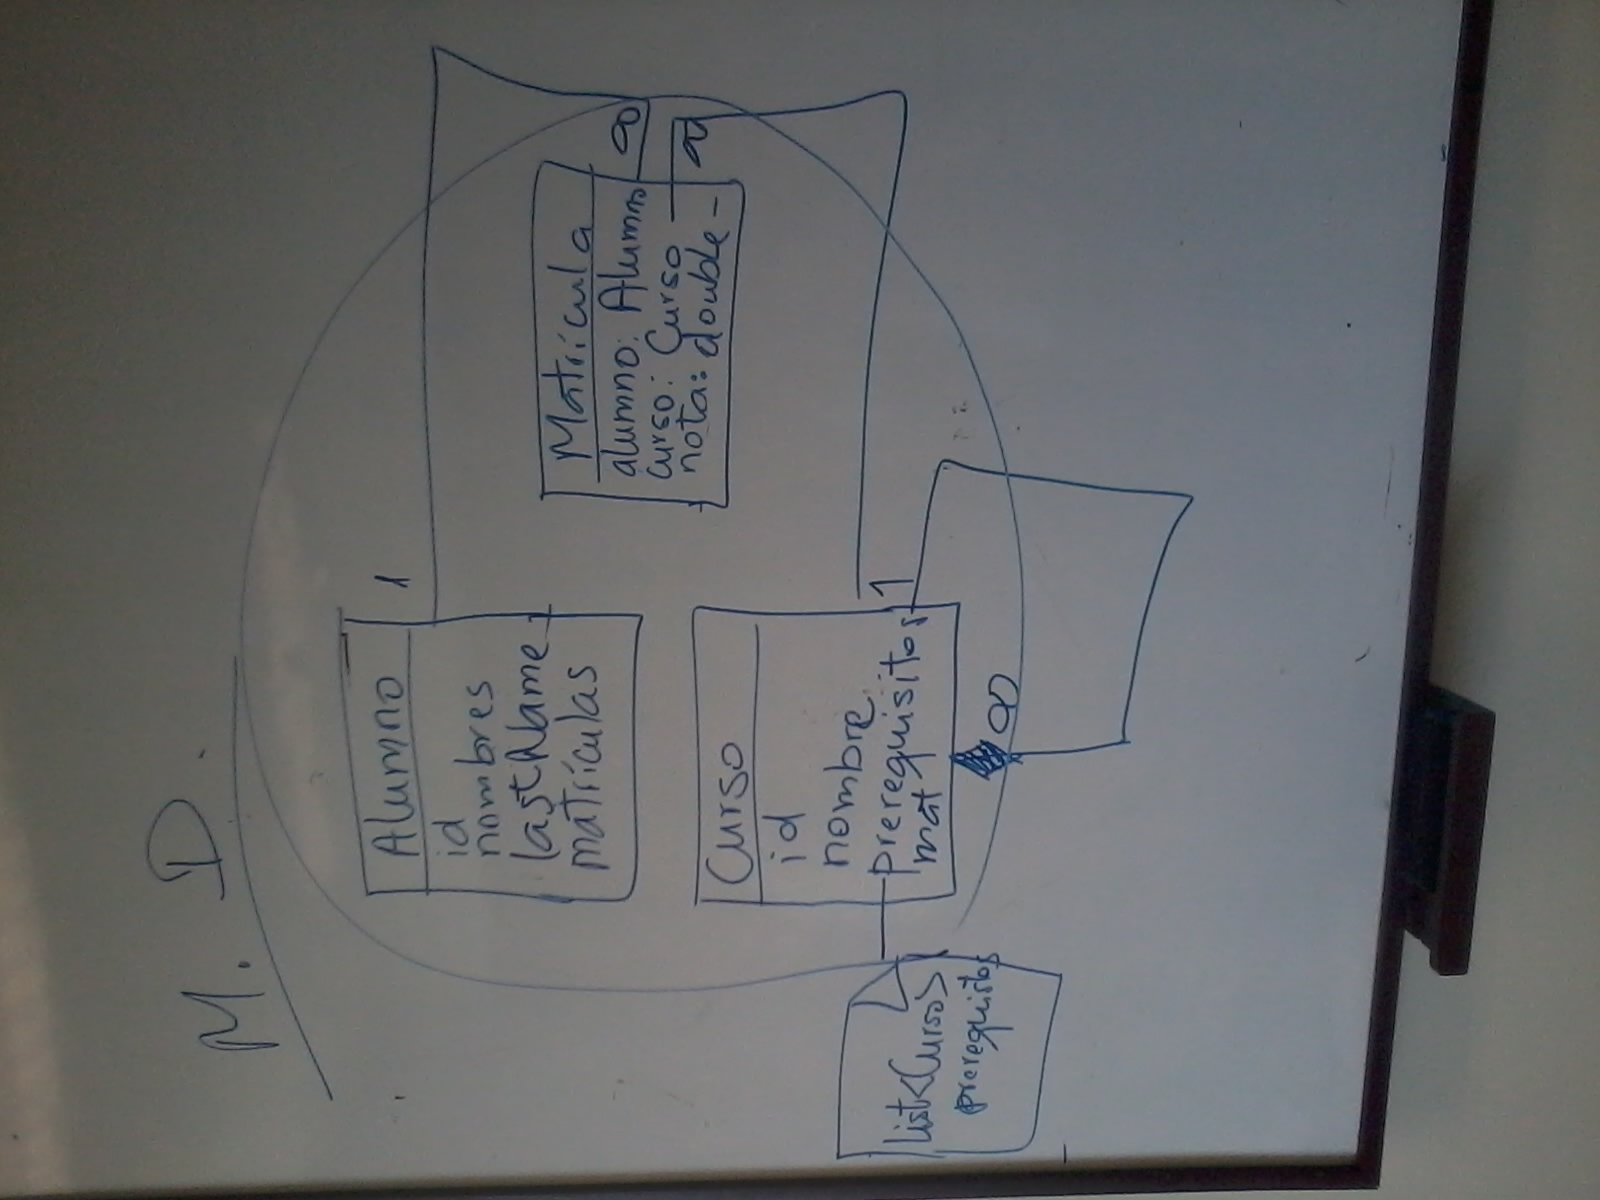 M. D.
Alumno
1
id
nombres
lastName
matrículas
Matrícula
alumno: Alumno
∞
curso: Curso
∞
nota: double
Curso
id
nombre
prerequisitos
1
mat
∞
list<Curso>
prerequistos